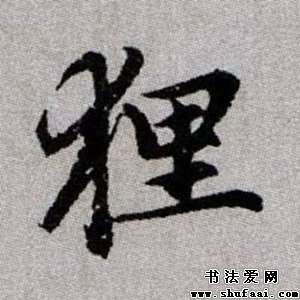 狸
书法爱网
www.shufaai.com